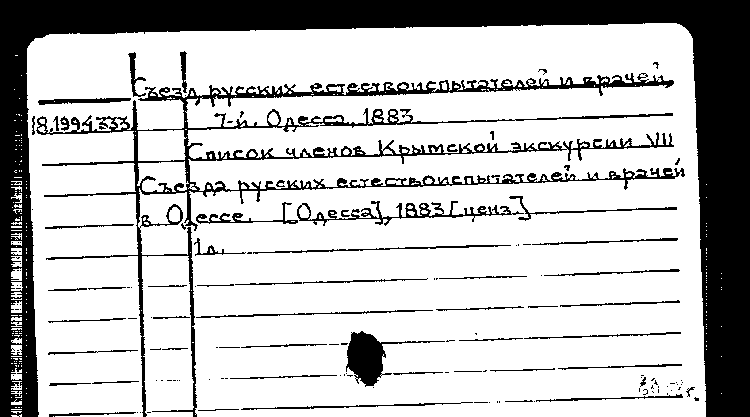 Съезд русских естествоиспытателей и врачей,
18.1994.333 7-й. Одесса, 1883.
Список членов Крымской экскурсии VII
Съезда русских естествоиспытателей и врачей
в Одессе. [Одесса], 1883 [ценз.]
1 л.